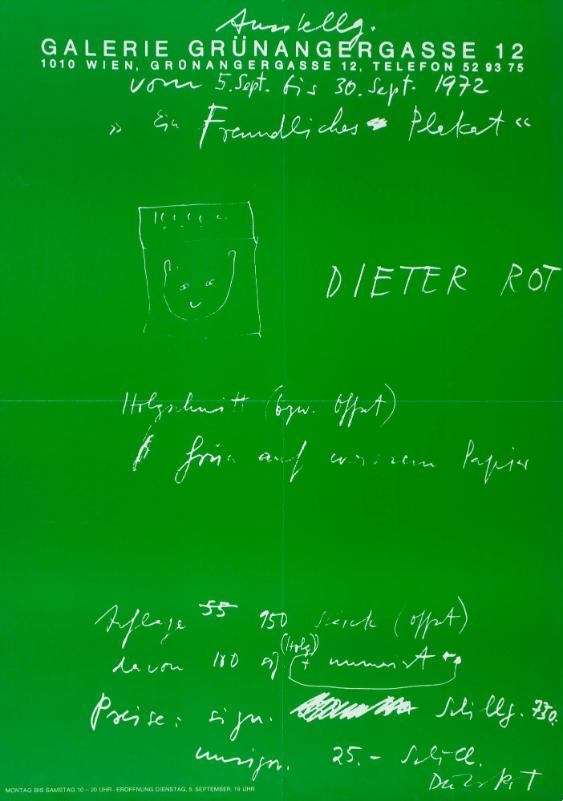 Ausstellg.
GALERIE GRÜNANGERGASSE 12
1010 WIEN, GRÜNANGERGASSE 12, TELEFON 52 93 75
vom 5. Sept. bis 30. Sept. 1972
» Ein Freundliches Plakat «
DIETER ROT
Holzschnitt (bzw. Offset)
grün auf weissem Papier
Auflage 950 Stück (offset)
(Holz)
davon 100 + numeriert
Preise: sign. Schillg. 730.
unsign. 25.- Schill.
MONTAG BIS SAMSTAG 10 – 20 UHR · ERÖFFNUNG DIENSTAG, 5. SEPTEMBER, 19 UHR